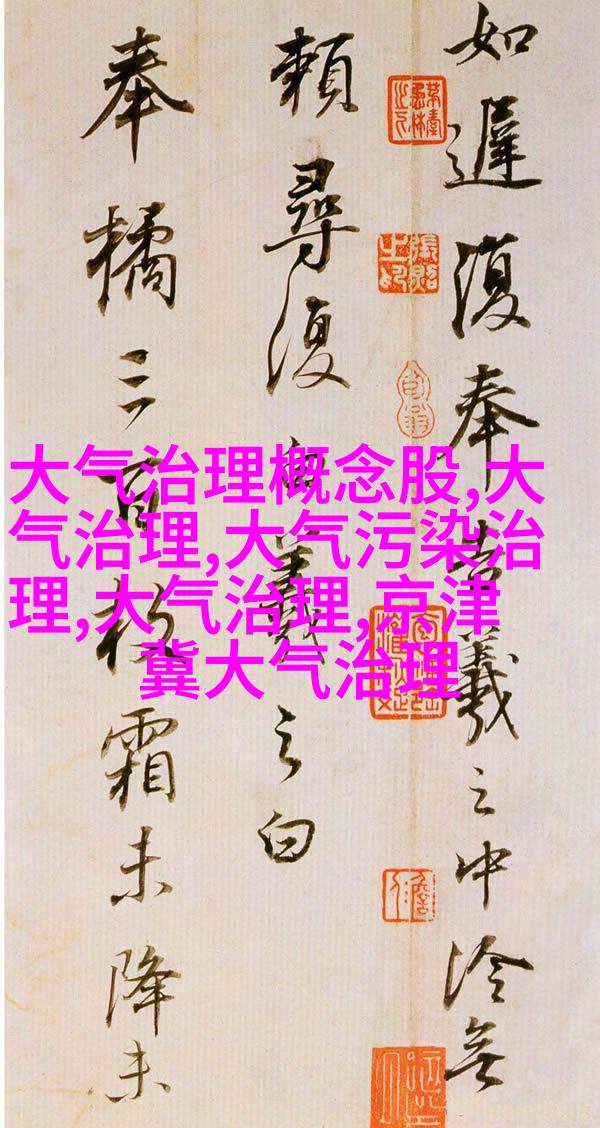 大气治理概念股,大
气治理,大气污染治
理,大气治理,京津
冀大气治理
如遲復奉告羲之中冷無
賴尋復羲之白
奉橘三百枚霜未降未